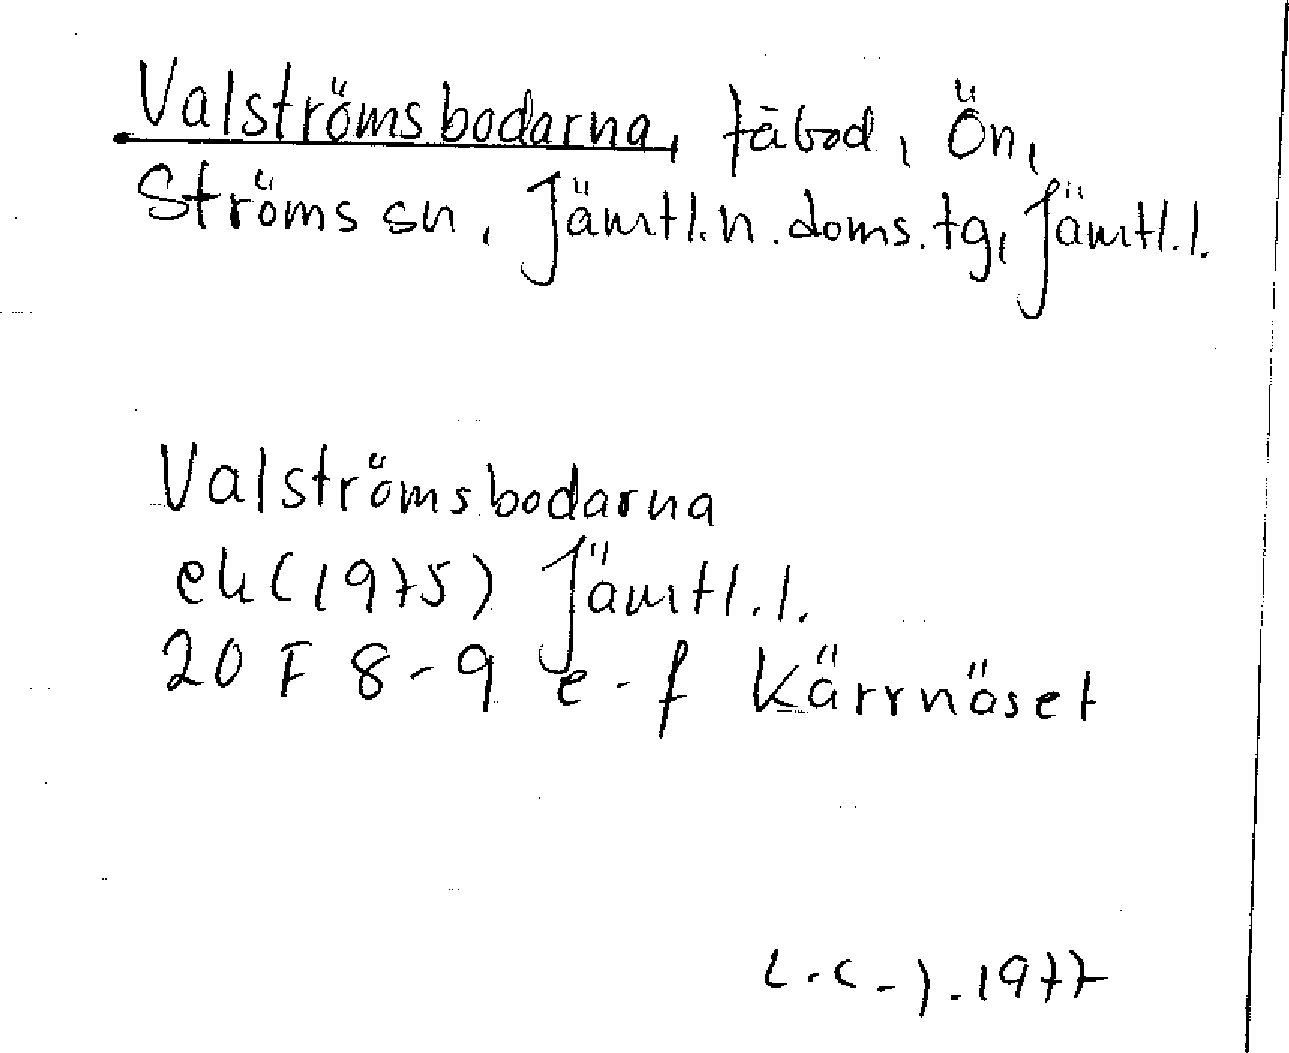 Valströmsbodarna, fäbod, Ön,
Ströms sn, Jämtl.n.doms.tg, Jämtl.l.
Valströmsbodarna
ek (1975) Jämtl.l.
20 F 8-9 e-f Kärrnäset
1977